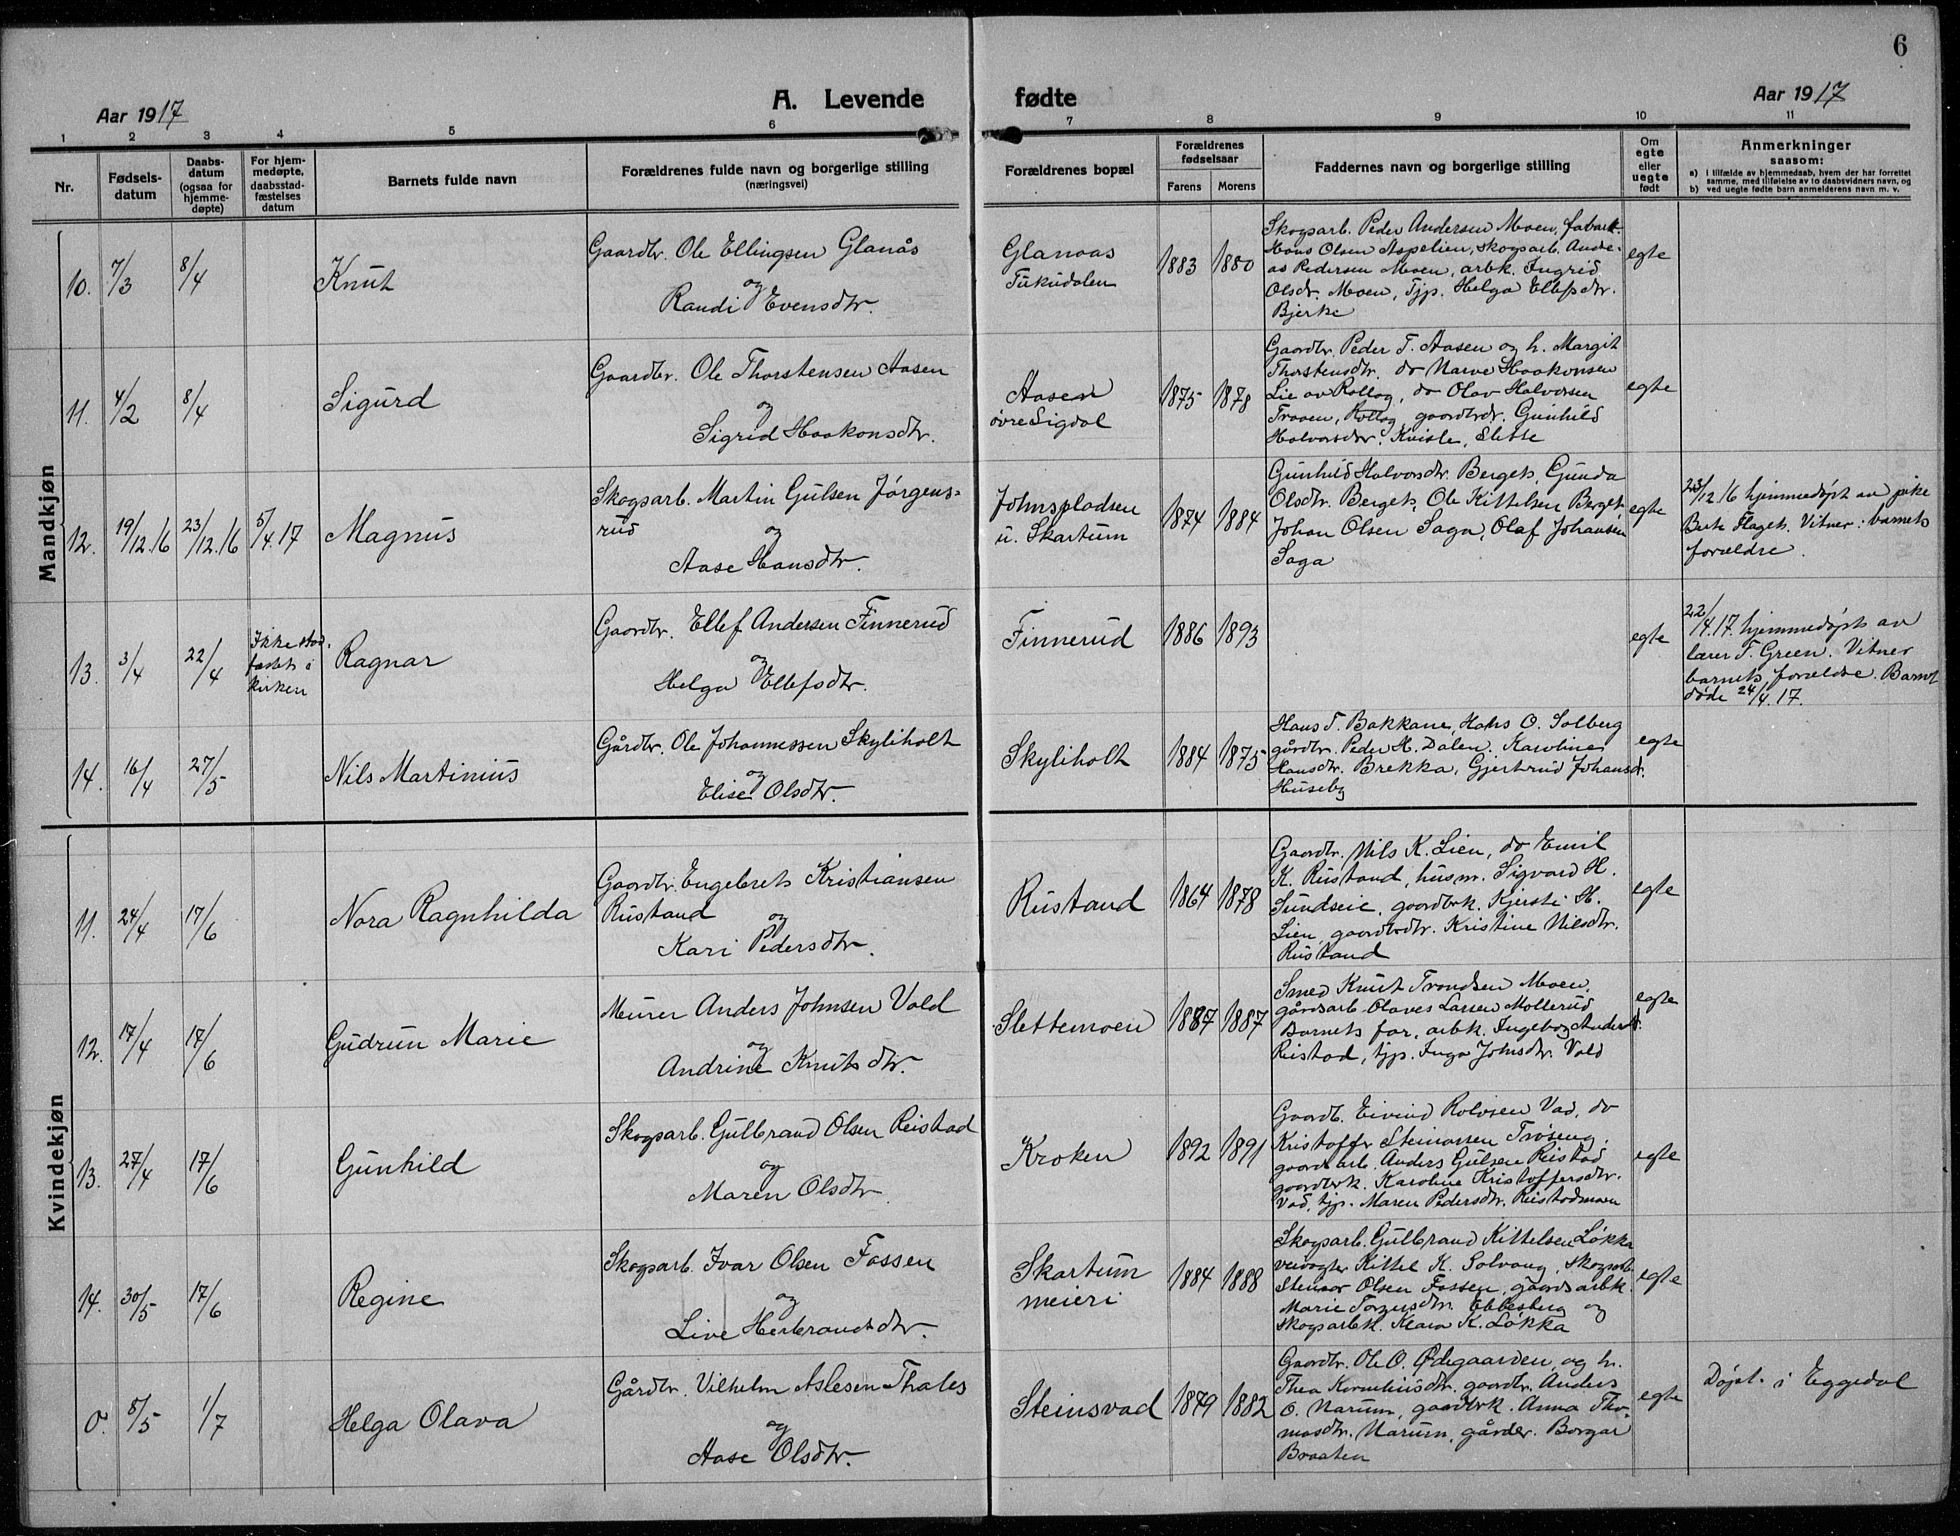 6
Aar 1917
A. Levende fødte
Aar 1917
1 2 3 4 5 6 7 8 9 10 11
Nr.
Fødsels-
datum
Daabs-
datum
(ogsaa for
hjemme-
døpte)
For hjem-
medøpte,
daabsstad-
fæstelses
datum
Barnets fulde navn
Forældrenes fulde navn og borgerlige stilling
(næringsvei)
Forældrenes bopæl
Forældrenes
fødselsaar
Farens Morens
Faddernes navn og borgerlige stilling
Om
egte
eller
uegte
født
Anmerkninger
saasom:
a) i tilfælde av hjemmedaab, hvem der har forrettet
samme, med tilføielse av to daabsvidners navn, og
b) ved uegte fødte barn anmelderens navn m. v.
Mandkjøn
10. 7/3 8/4 Knut
Gaardbr. Ole Ellingsen Glanås
og
Randi Evensdtr.
Glanaas
1883 1880
Skogsarb. Peder Andersen Moen, fabark
Hans Olsen Aspelien, skogsarb. Ande-
as Pedersen Moen, arbk. Ingrid
Olsdr. Moen, Tjp. Helga Ellefsdtr.
Bjerke
egte
11. 4/2 8/4 Sigurd
Gaardbr. Ole Thorstensen Aasen
og
Sigrid Haakonsdtr.
Aasen
øvre Sigdal
1875 1878
Gaardbr. Peder T. Aasen og h. Margit
Thorstensdtr. do Narve Haakonsen
Lie av Rollag, do Olav Halvorsen
Traaen, Rollag gaardbrdr. Gunhild
Halvorsdtr. Kvisle, Slette
egte
12. 19/12.16 23/12.16 5/4.17 Magnus
Skogsarb. Martin Gulsen Jørgens-
rud
og
Aase Hansdtr.
Johnspladsen
u. Skartum
1874 1884
Gunhild Halvorsdtr. Berget, Gunda
Olsdtr. Berget, Ole Kittelsen Berget
Johan Olsen Saga, Olaf Johansen
Saga
egte
23/12.16 hjemmedøpt av pike
Berte Flaget. Vitner: barnets
forældre.
13. 3/4 22/4 Ikke stad-
fæstet i
kirken
Ragnar
Gaardbr. Ellef Andersen Finnerud
og
Helga Ellefsdtr.
Finnerud
1886 1893
egte
22/4.17. hjemmedøpt av
lærer T. Green. Vitner
barnets forældre. Barnet
døde 24/4.17.
14. 16/4 27/5 Nils Martinius
Gårdbr. Ole Johannessen Skyliholt
og
Elise Olsdtr.
Skyliholt
1884 1875
Hans T. Bakkane, Hans O. Solberg
gårdbr. Peder H. Dalen. Karoline
Hansdtr. Brekka, Gjertrud Johansdr.
Huseby
egte
Kvindekjøn
11. 24/4 17/6 Nora Ragnhilda
Gaardbr. Engebret Kristiansen
Rustand
og
Kari Pedersdtr.
Rustand
1864 1878
Gaardbr. Nils K. Lien, do Emil
K. Rustand, husm. Sigvard H.
Sundseie, gaardbrk. Kjersti H.
Lien, gaardbrdtr. Kristine Nilsdtr.
Rustand
egte
12. 17/4 17/6 Gudrun Marie
Murer Anders Johnsen Vold
og
Andrine Knutsdtr.
Slettemoen
1887 1887
Smed Knut Trondsen Moen,
gårdsarb. Olaves Larsen Mollerud
Barnets far, arbk. Ingeborg Andersd.
Reistad, tjp. Inga Johnsdtr. Vold
egte
13. 27/4 17/6 Gunhild
Skogsarb. Gulbrand Olsen Reistad
og
Maren Olsdtr.
Kroken
1892 1891
Gaardb. Eivind Rolvsen Vad, do
Kristoffer Steinarsen Trøseng,
gaardsarb. Anders Gulsen Reistad
gaardbrk. Karoline Kristoffersdtr.
Vad, tjp. Maren Pedersdtr. Reistadmoen
egte
14. 30/5 17/6 Regine
Skogsarb. Ivar Olsen Fossen
og
Live Herbrandsdtr.
Skartum
meieri
1884 1888
Skogsarb. Gulbrand Kittelsen Løkka
veivogter Kittel K. Solvang, skogsarb
Steinar Olsen Fossen, gaardsarbk.
Marie Torgersdtr. Ebbesberg og
skogsarbk. Klara K. Løkka
egte
0. 5/5 1/7 Helga Olava
Gårdbr. Vilhelm Aslesen Thales
og
Aase Olsdtr.
Steinsvad
1879 1882
Gaardbr. Ole O. Ødegaarden, og h.
Thea Korneliusdtr. gaardbr. Anders
O. Narum, gaardbrk. Anna Tho-
masdtr. Narum, gårder. Borgar
Braaten
egte
Døpt i Eggedal